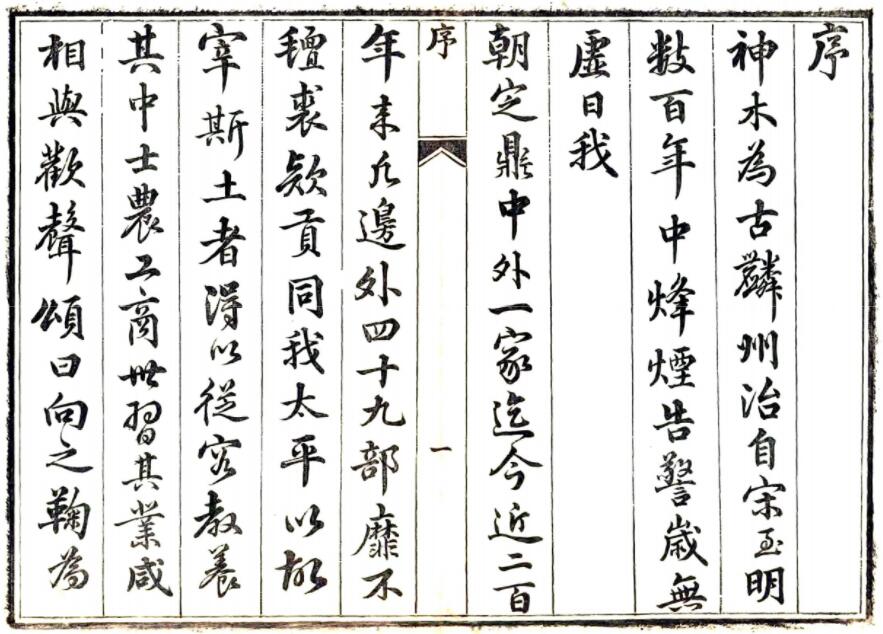 序
神木為古麟州治自宋至明
数百年中烽煙告警歲無
虛日我
朝定鼎中外一家迄今近二百
序
一
年來凡邊外四十九部靡不
氊裘欵貢同我太平以故
宰斯土者得以從容教養
其中士農工商世習其業咸
相與歡聲頌曰向之鞠為